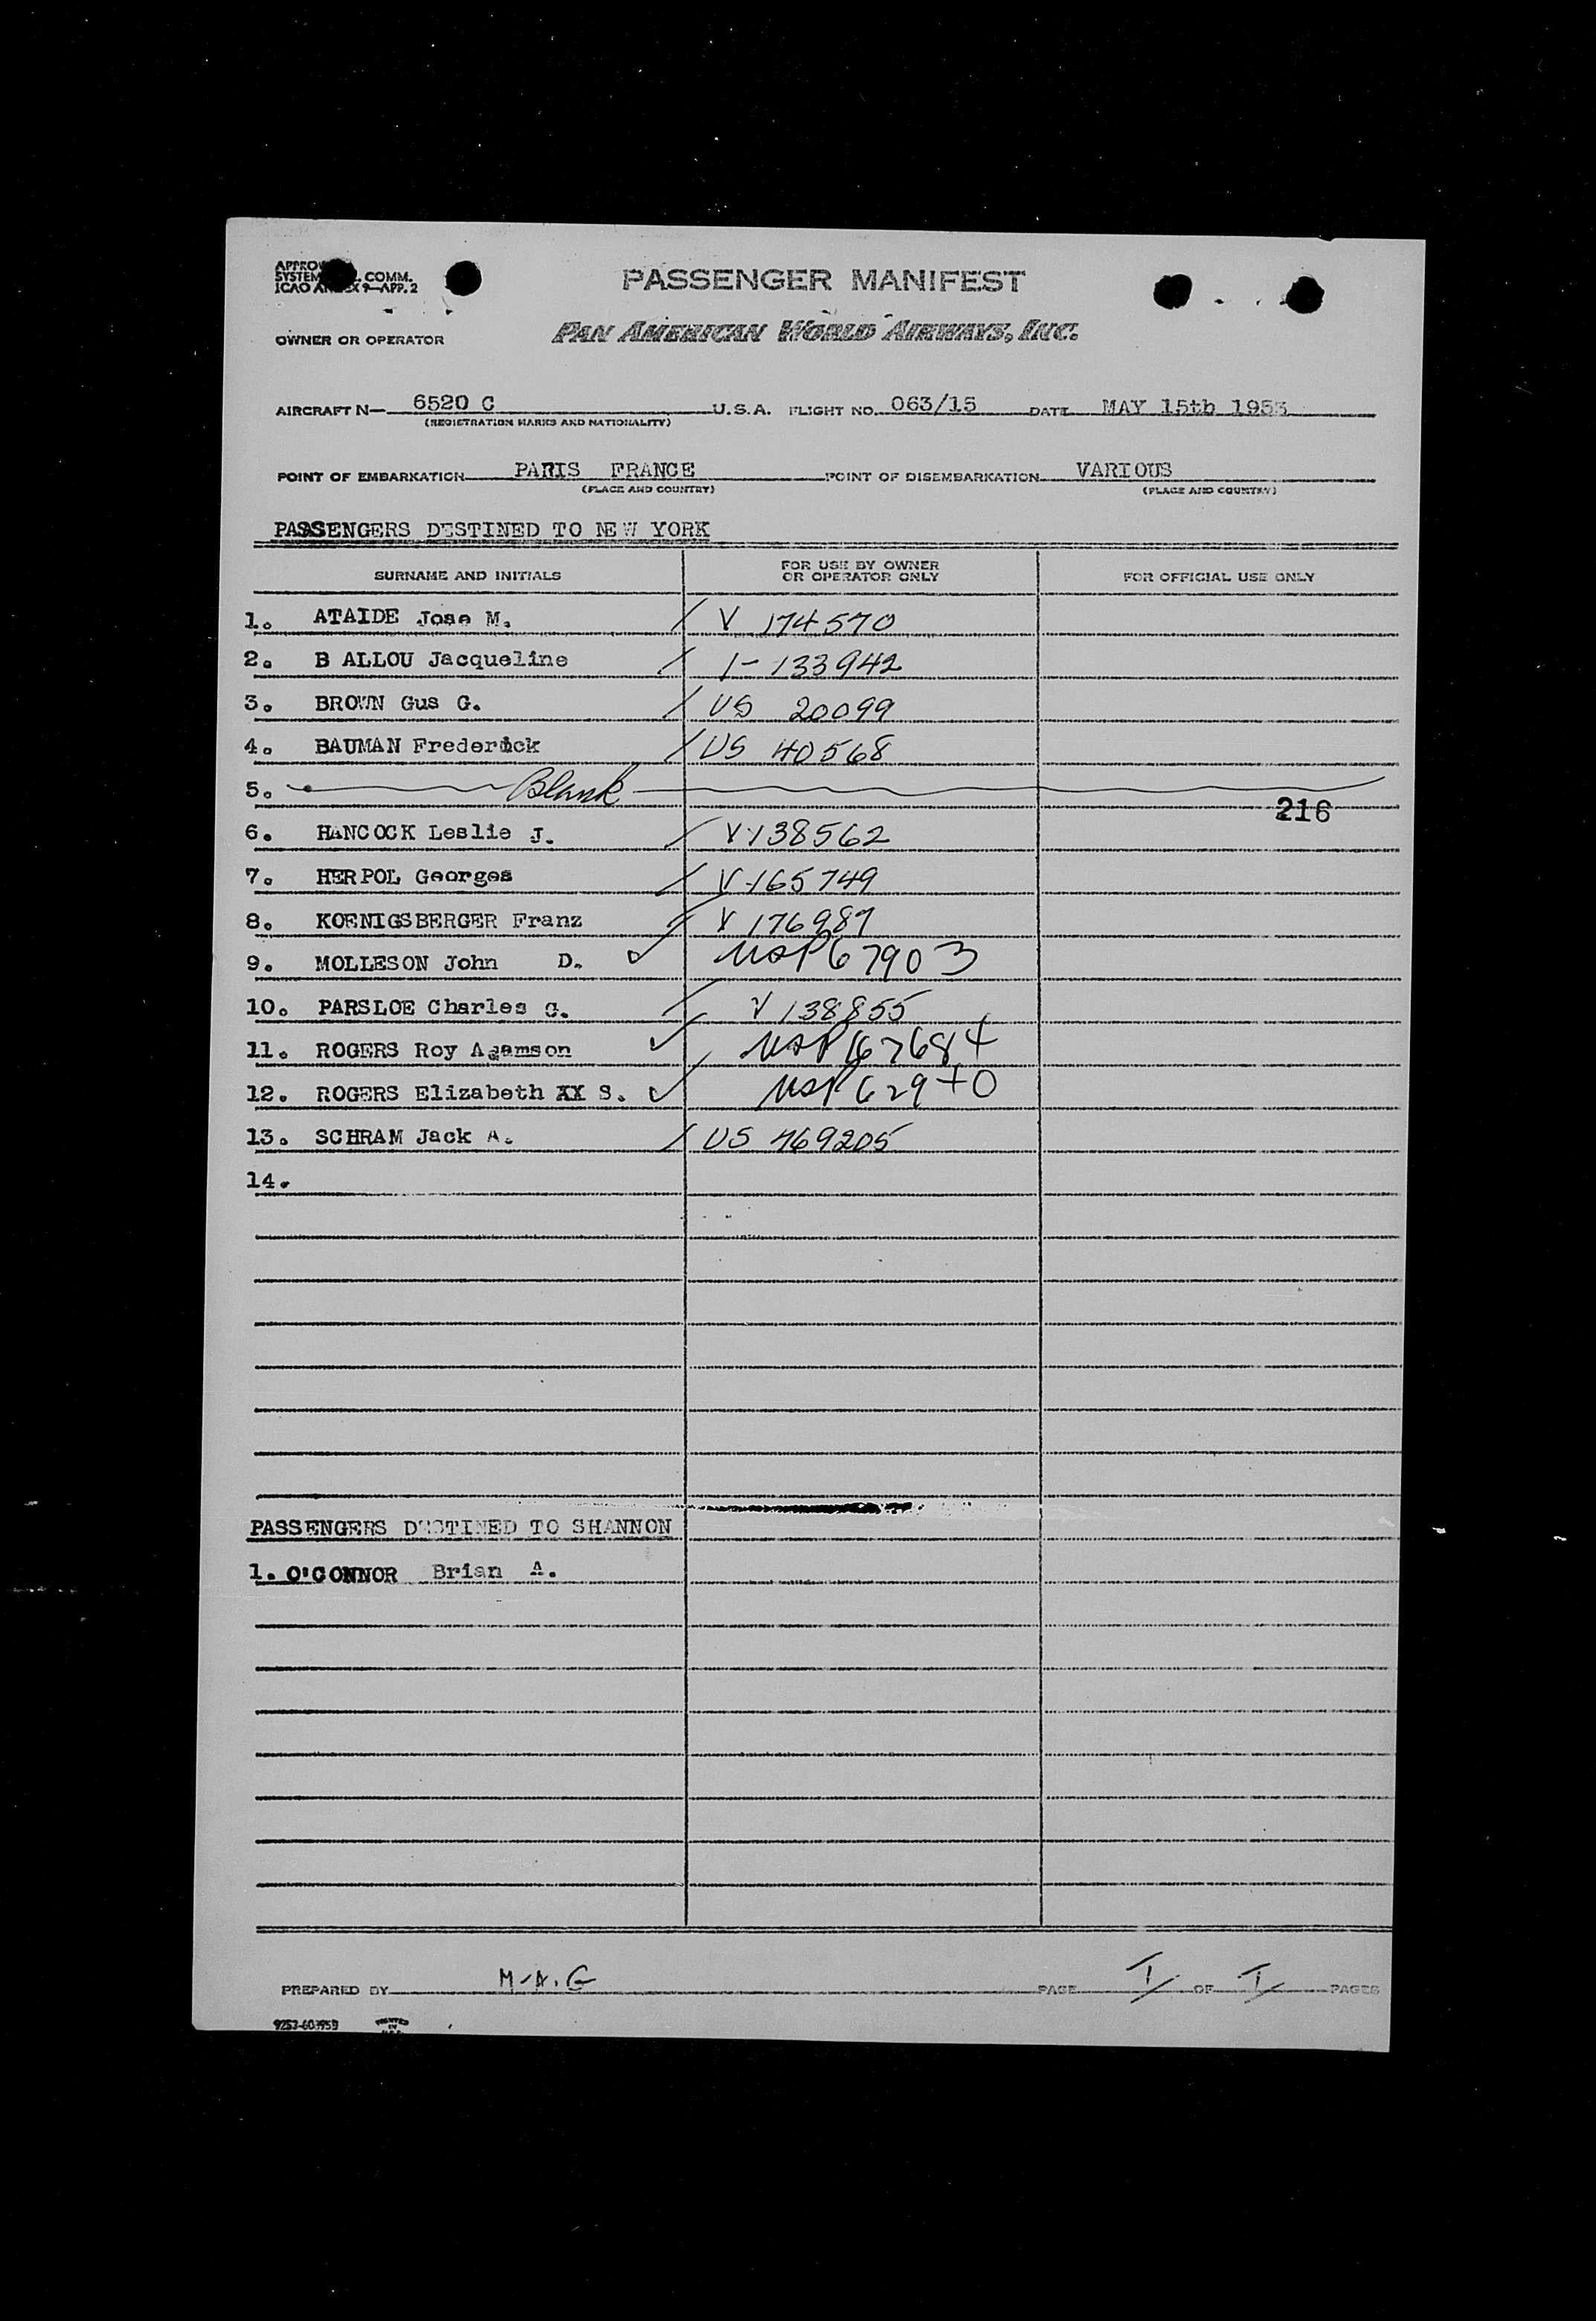 PASSENGER MANIFEST
ICAO 9-APP. 2
OWNER OR OPERATOR PAN AMERICAN WORLD AIRWAYS, INC.
AIRCRAFT N- 6520 C U.S.A. FLIGHT NO. 063/15 DATE MAY 15th 1953
(REGISTRATION MARKS AND NATIONALITY)
POINT OF EMBARKATION PARIS FRANCE POINT OF DISEMBARKATION VARIOUS
(PLACE AND COUNTRY) (PLACE AND COUNTRY)
PASSENGERS DESTINED TO NEW YORK
SURNAME AND INITIALS FOR USE BY OWNER OR OPERATOR ONLY FOR OFFICIAL USE ONLY
1. ATAIDE Jose M. / V 174570
2. B ALLOU Jacqueline / 1-133942
3. BROWN Gus G. / US 20099
4. BAUMAN Frederick / US 40568
5. Blank
216
6. HANCOCK Leslie J. / V-138562
7. HERPOL Georges / V-165749
8. KOENIGSBERGER Franz V 176987
9. MOLLESON John D. ✓ USP 67903
10. PARSLOE Charles G. / V 138855
11. ROGERS Roy ✓ USP 167684
12. ROGERS Elizabeth XX S. ✓ USP 62940
13. SCHRAM Jack A. / US 469205
14.
PASSENGERS DESTINED TO SHANNON
1. O'CONNOR Brian A.
PREPARED BY M.A.G PAGE I OF I PAGES
PRINTED IN U.S.A.